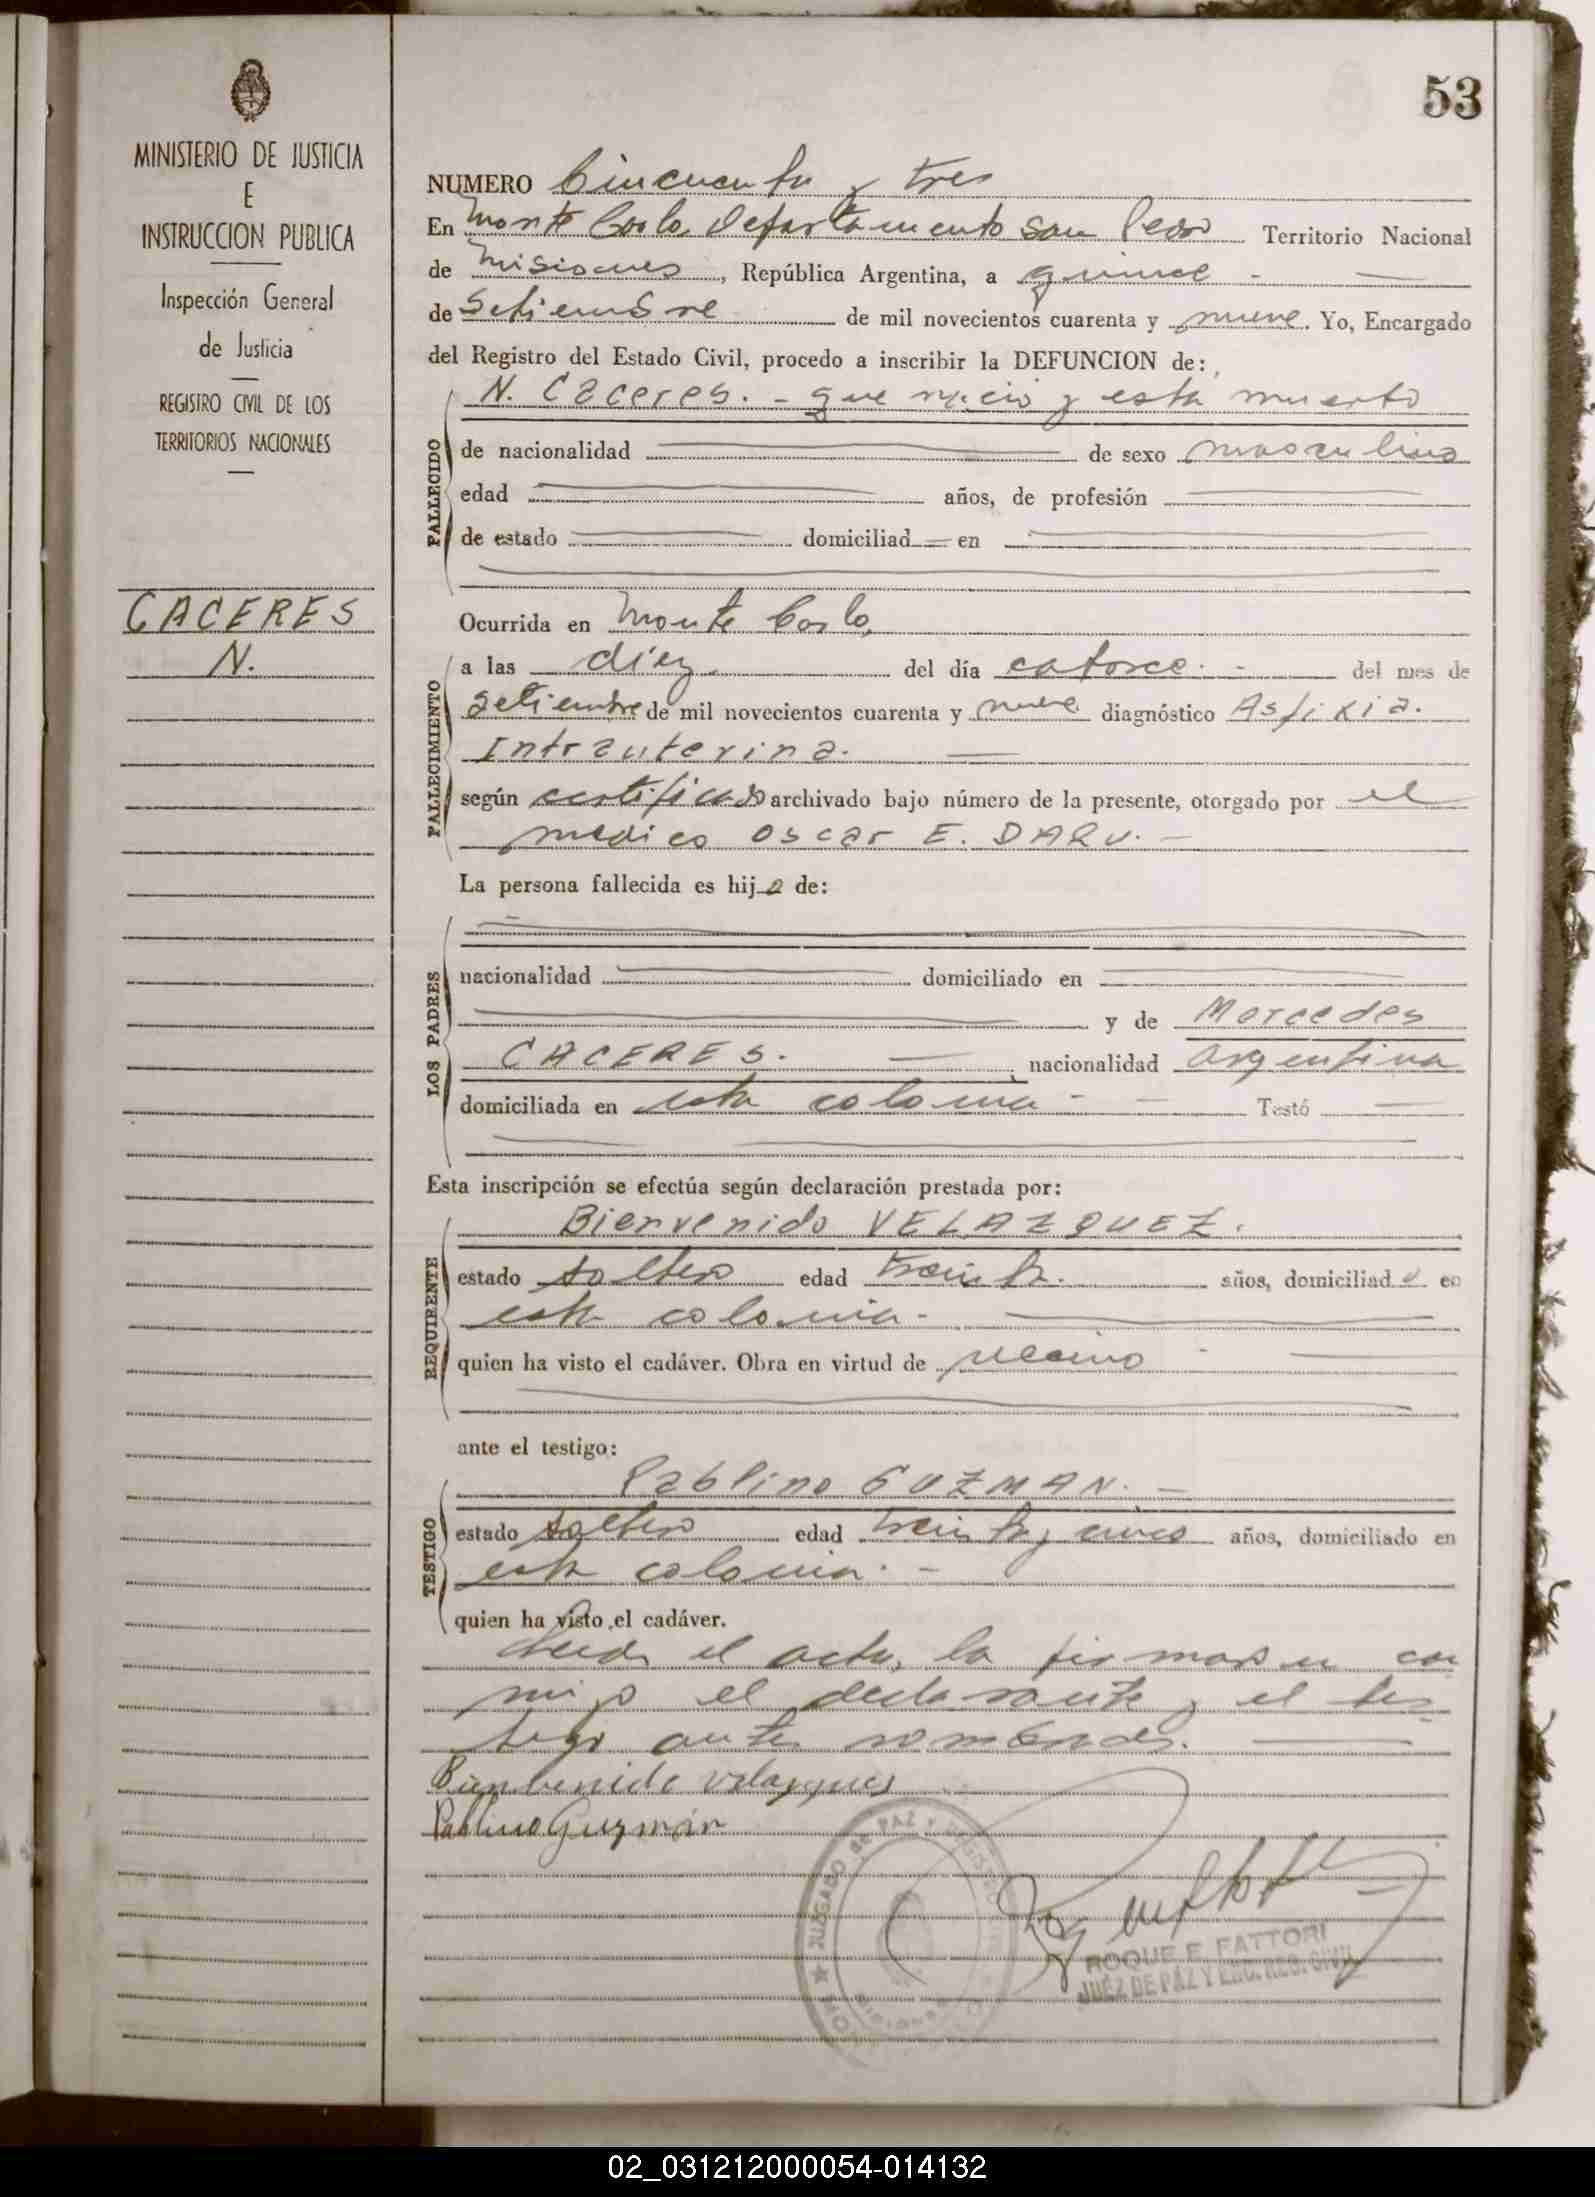 53
MINISTERIO DE JUSTICIA
E
INSTRUCCION PUBLICA
Inspección General
de Justicia
REGISTRO CIVIL DE LOS
TERRITORIOS NACIONALES
CACERES
N.
NUMERO Cincuenta y tres
En Monte Carlo, Departamento San Pedro Territorio Nacional
de Misiones, República Argentina, a quince
de Setiembre de mil novecientos cuarenta y nueve. Yo, Encargado
del Registro del Estado Civil, procedo a inscribir la DEFUNCION de:
N. Caceres. - que nació y esta muerto
FALLECIDO
de nacionalidad de sexo masculino
edad años, de profesión
de estado domiciliad en
Ocurrida en Monte Carlo,
FALLECIMIENTO
a las diez del día catorce. - del mes de
Setiembre de mil novecientos cuarenta y nueve diagnóstico Asfixia.
Intrauterina.
según certificado archivado bajo número de la presente, otorgado por el
médico Oscar E. DARU. -
La persona fallecida es hijo de:
LOS PADRES
nacionalidad domiciliado en
y de Mercedes
CACERES. - nacionalidad argentina
domiciliada en esta colonia - Testó
Esta inscripción se efectúa según declaración prestada por:
REQUIRENTE
Bienvenido VELAZQUEZ.
estado soltero edad treinta. años, domiciliado en
esta colonia. -
quien ha visto el cadáver. Obra en virtud de vecino
ante el testigo:
TESTIGO
Pablino GUZMAN. -
estado soltero edad treinta y cinco años, domiciliado en
esta colonia. -
quien ha visto el cadáver.
Leída el acta, la firmaron con
migo el declarante y el tes
tigo antes nombrados.
Bienbenido Velazques
Pablino Guzmán
JUZGADO DE PAZ Y
MISIONES
ROQUE E. FATTORI
JUEZ DE PAZ Y ENC. REG. CIVIL
02_031212000054-014132